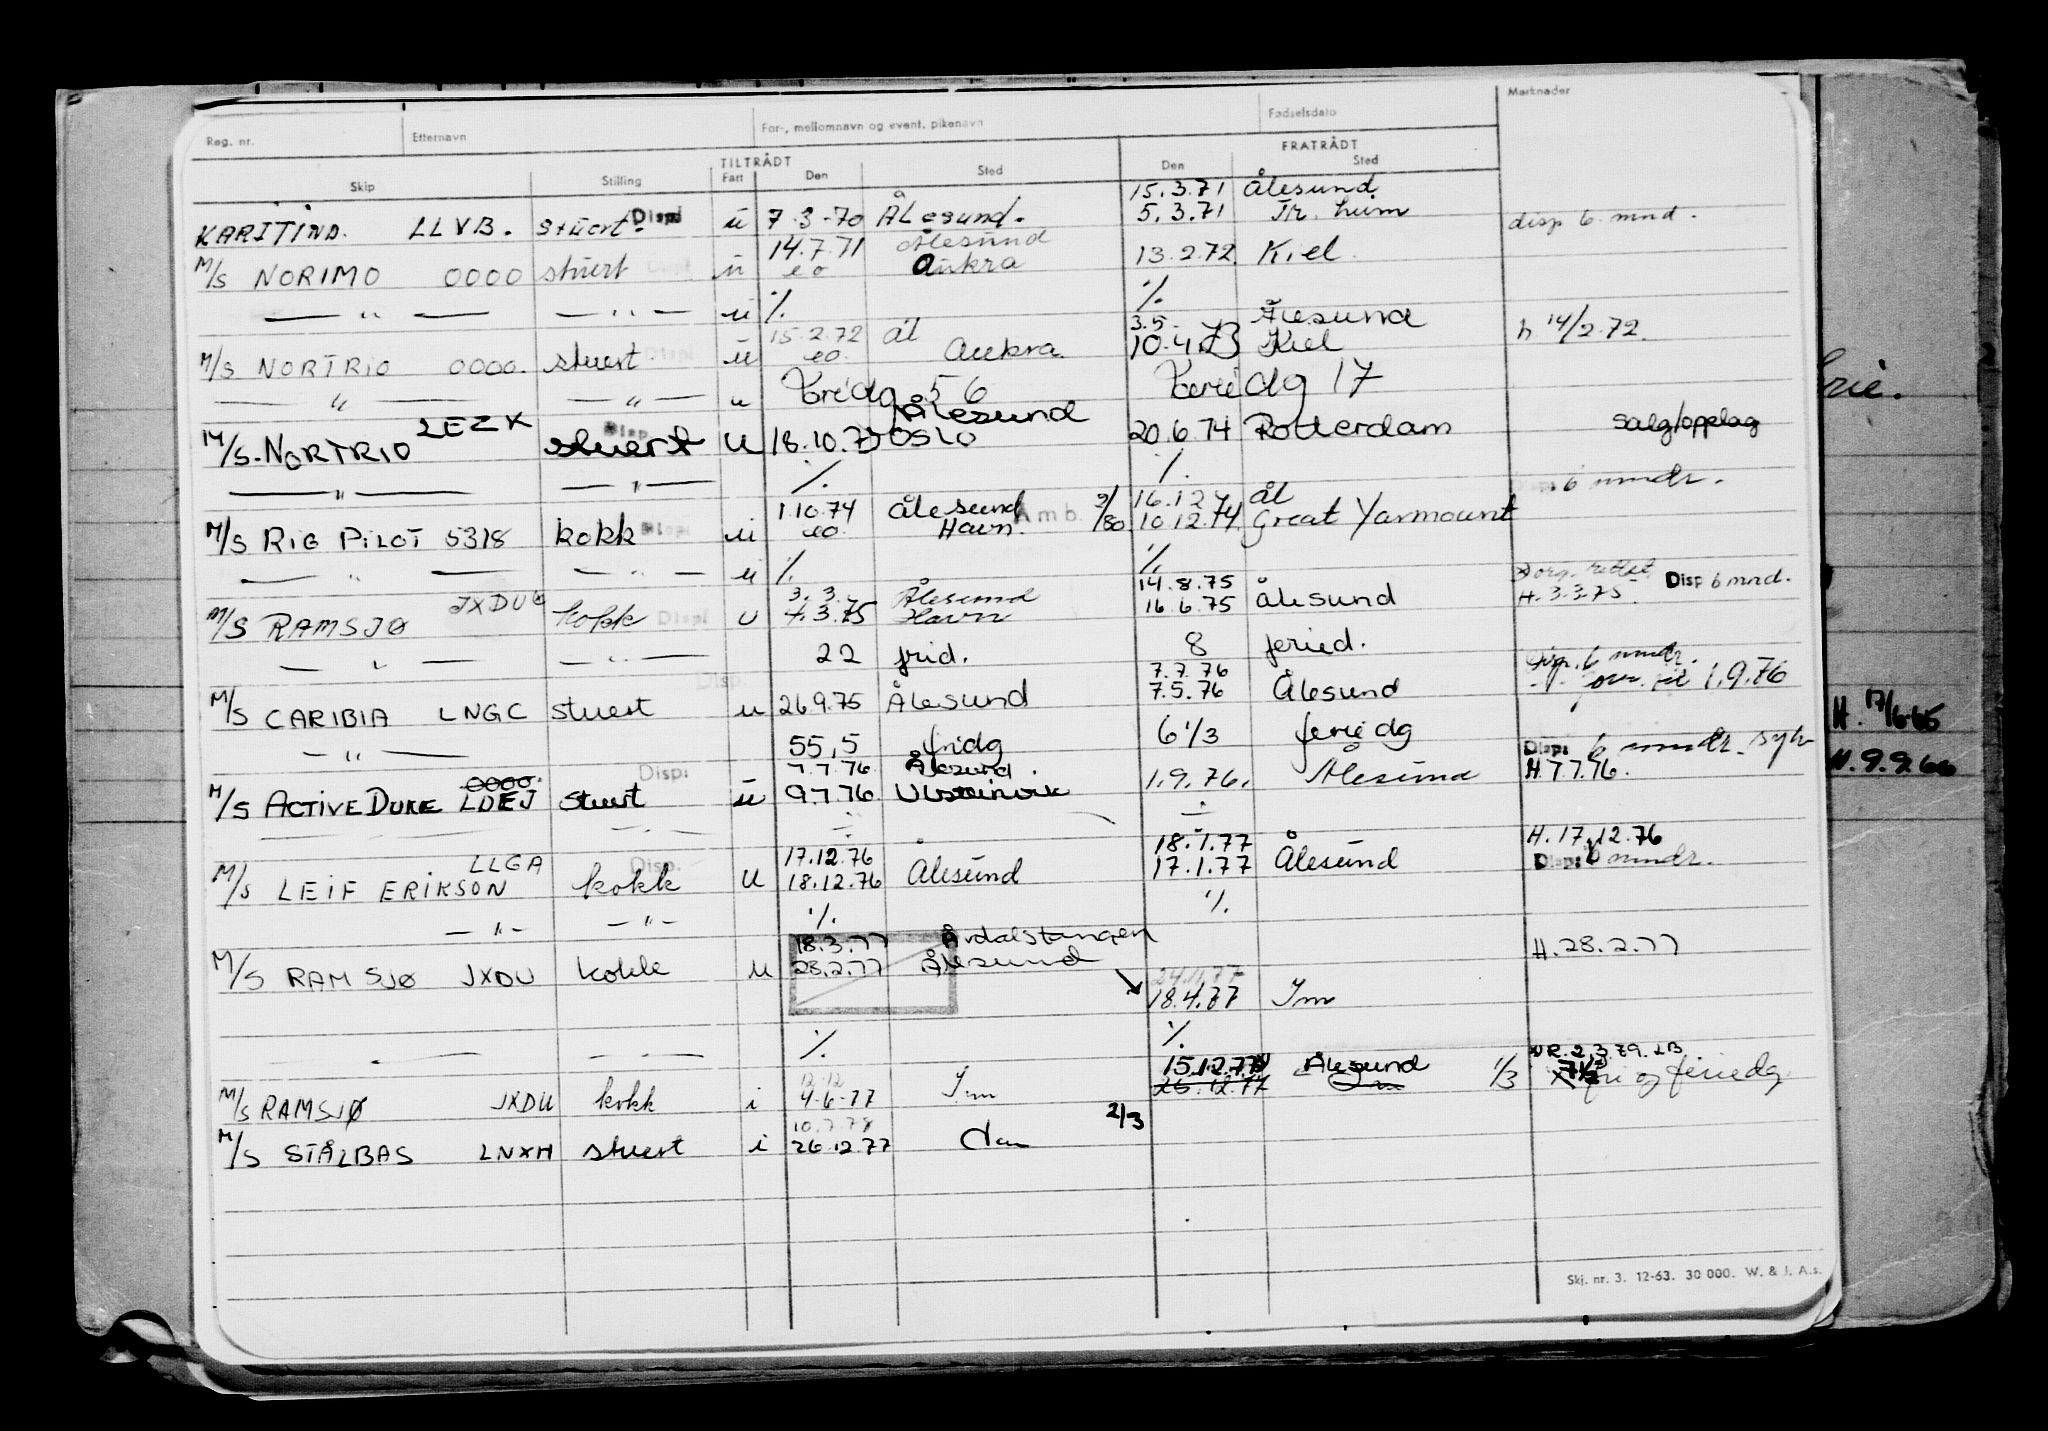 Reg. nr. Etternavn For-, mellomnavn og event. pikenavn Fødselsdato Merknader
TILTRÅDT FRATRÅDT
Skip Stilling Fart Den Sted Den Sted
15.3.71 Ålesund
KARITIND. LLVB. stuert. Disp ü 7-3-70 Ålesund. 5.3.71 Tr. heim disp 6 mnd.
14.7.71 Ålesund
M/S NORIMO 0000 stuert Disp ü eo Aukra 13.2.72. Kiel
— " — — " — ü ·/. ·/.
15.2.72 ål 3.5. Ålesund
M/S NORTRIO 0000. stuert Disp ü eo. Aukra. 10.4.73 Kiel h 14/2.72.
— " — — " — u 56 17
LEZK Ålesund
M/S. NORTRIO Disp stuert U 18.10.73 OSLO 20.6.74 Rotterdam Salg/opplag
— " — — " — ·/. ·/.
1.10.74 Ålesund 16.12 ål Disp. 6 mndr.
M/S RIG PILOT 5318 kokk Disp ü eo. Havn. Amb. 9/80 10.12.74. Great Yarmount
— " — — " — ü ·/. ·/.
JXDU 3.3. Ålesund 14.8.75
M/S RAMSJØ kokk Disp U 4.3.75 Havn 16.6.75 Ålesund H.3.3.75. Disp 6 mnd.
— " — — " — 22 frid. 8 feried.
Disp. 7.7.76 Disp. 6 mndr.
M/S CARIBIA LNGC stuert u 26.9.75 Ålesund 7.5.76 Ålesund 1.9.76
— " — 55,5 fridg 6 1/3 feriedg
0000. Disp: 7.7.76 Ålesund. Disp: 6 mndr.
M/S ACTIVE DUKE LDEJ Stuert ü 9.7.76 Ulsteinvik 1.9.76. Ålesund H.7.7.76.
LLGA Disp. 17.12.76 18.1.77 H.17.12.76
M/S LEIF ERIKSON kokk U 18.12.76 Ålesund 17.1.77 Ålesund Disp: 6 mndr.
— " — — " — ·/. ·/.
18.3.77 Årdalstangen
M/S RAMSJØ JXDU kokk U 28.2.77 Ålesund H.28.2.77
18.4.77 Im
·/. ·/.
12-12 15.12.77 Ålesund 2.3.79.
M/S RAMSJØ JXDU kokk i 4-6-77 Im 26.12.77 1/3 fri og feriedg
10.7.78 2/3
M/S STÅLBAS LNXH stuert i 26.12.77
H. 17/6-65
H.9.9.66
Skj. nr. 3. 12-63. 30 000. W. & J. A.s.